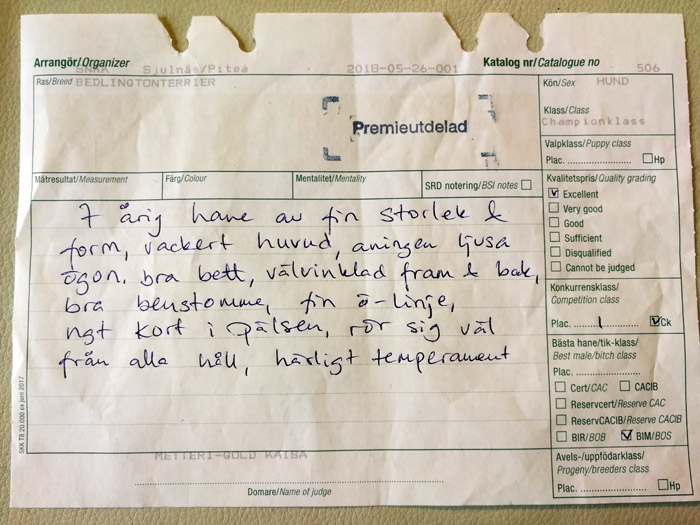 Arrangör/Organizer
SNKK Sjulnäs/Piteå 2018-05-26-001
Katalog nr/Catalogue no 506
Ras/Breed BEDLINGTONTERRIER
Premieutdelad
Kön/Sex HUND
Klass/Class
Championklass
Valpklass/Puppy class
Plac. Hp
Mätresultat/Measurement Färg/Colour Mentalitet/Mentality SRD notering/BSI notes
Kvalitetspris/Quality grading
Excellent
Very good
Good
Sufficient
Disqualified
Cannot be judged
7 årig hane av fin storlek &
form, vackert huvud, aningen ljusa
ögon. bra bett, välvinklad fram & bak,
bra benstomme, fin ö-linje,
ngt kort i pälsen, rör sig väl
från alla håll, härligt temperament
Konkurrensklass/
Competition class
Plac. 1 Ck
Bästa hane/tik-klass/
Best male/bitch class
Plac.
Cert/CAC CACIB
Reservcert/Reserve CAC
ReservCACIB/Reserve CACIB
BIR/BOB BIM/BOS
Avels-/uppfödarklass/
Progeny/breeders class
Plac. Hp
METTERI-GOLD KAISA
Domare/Name of judge
SKK T8 20.000 ex juni 2017